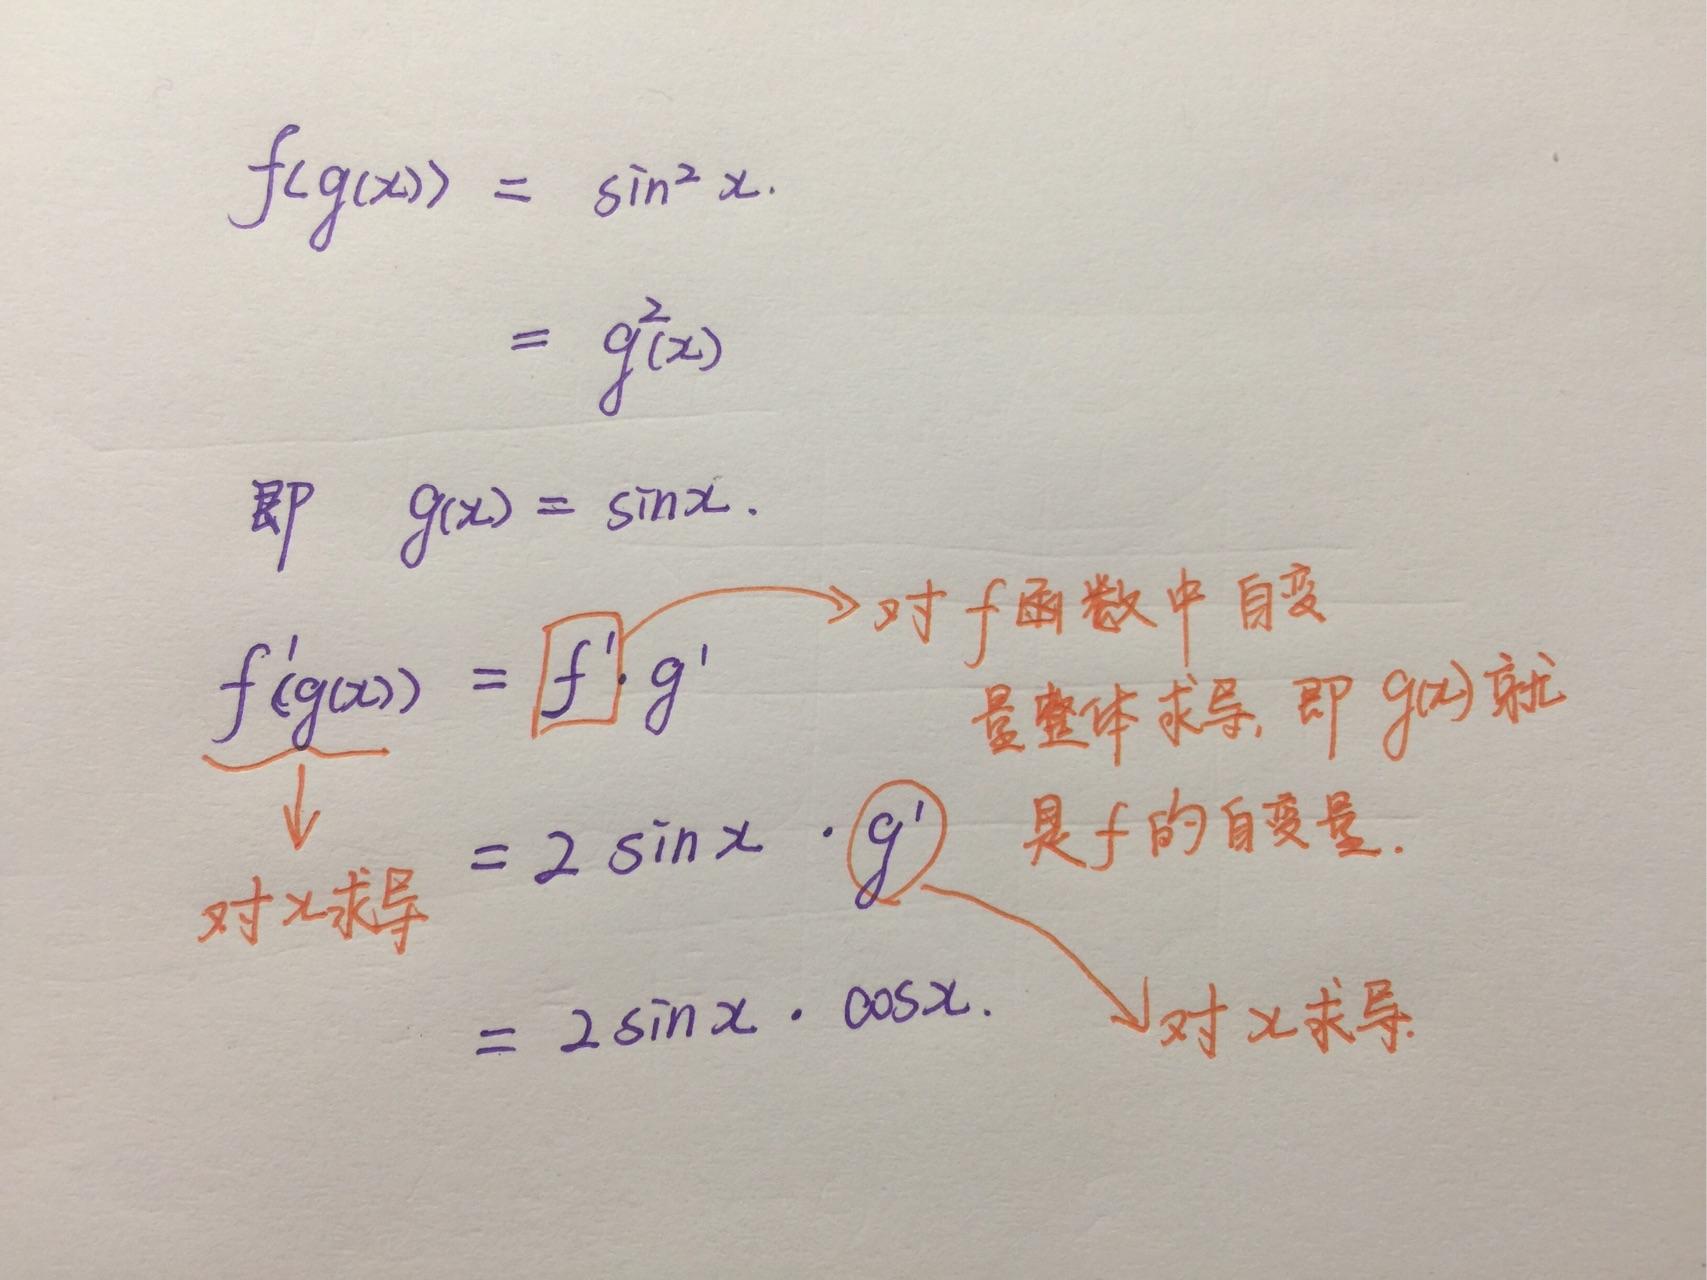 f(g(x)) = sin² x.
= g²(x)
即 g(x) = sinx.
f'(g(x)) = f'· g'
对f函数中自变
量整体求导,即g(x)就
是f的自变量.
对x求导
= 2 sin x · g'
对x求导.
= 2 sin x · cosx.